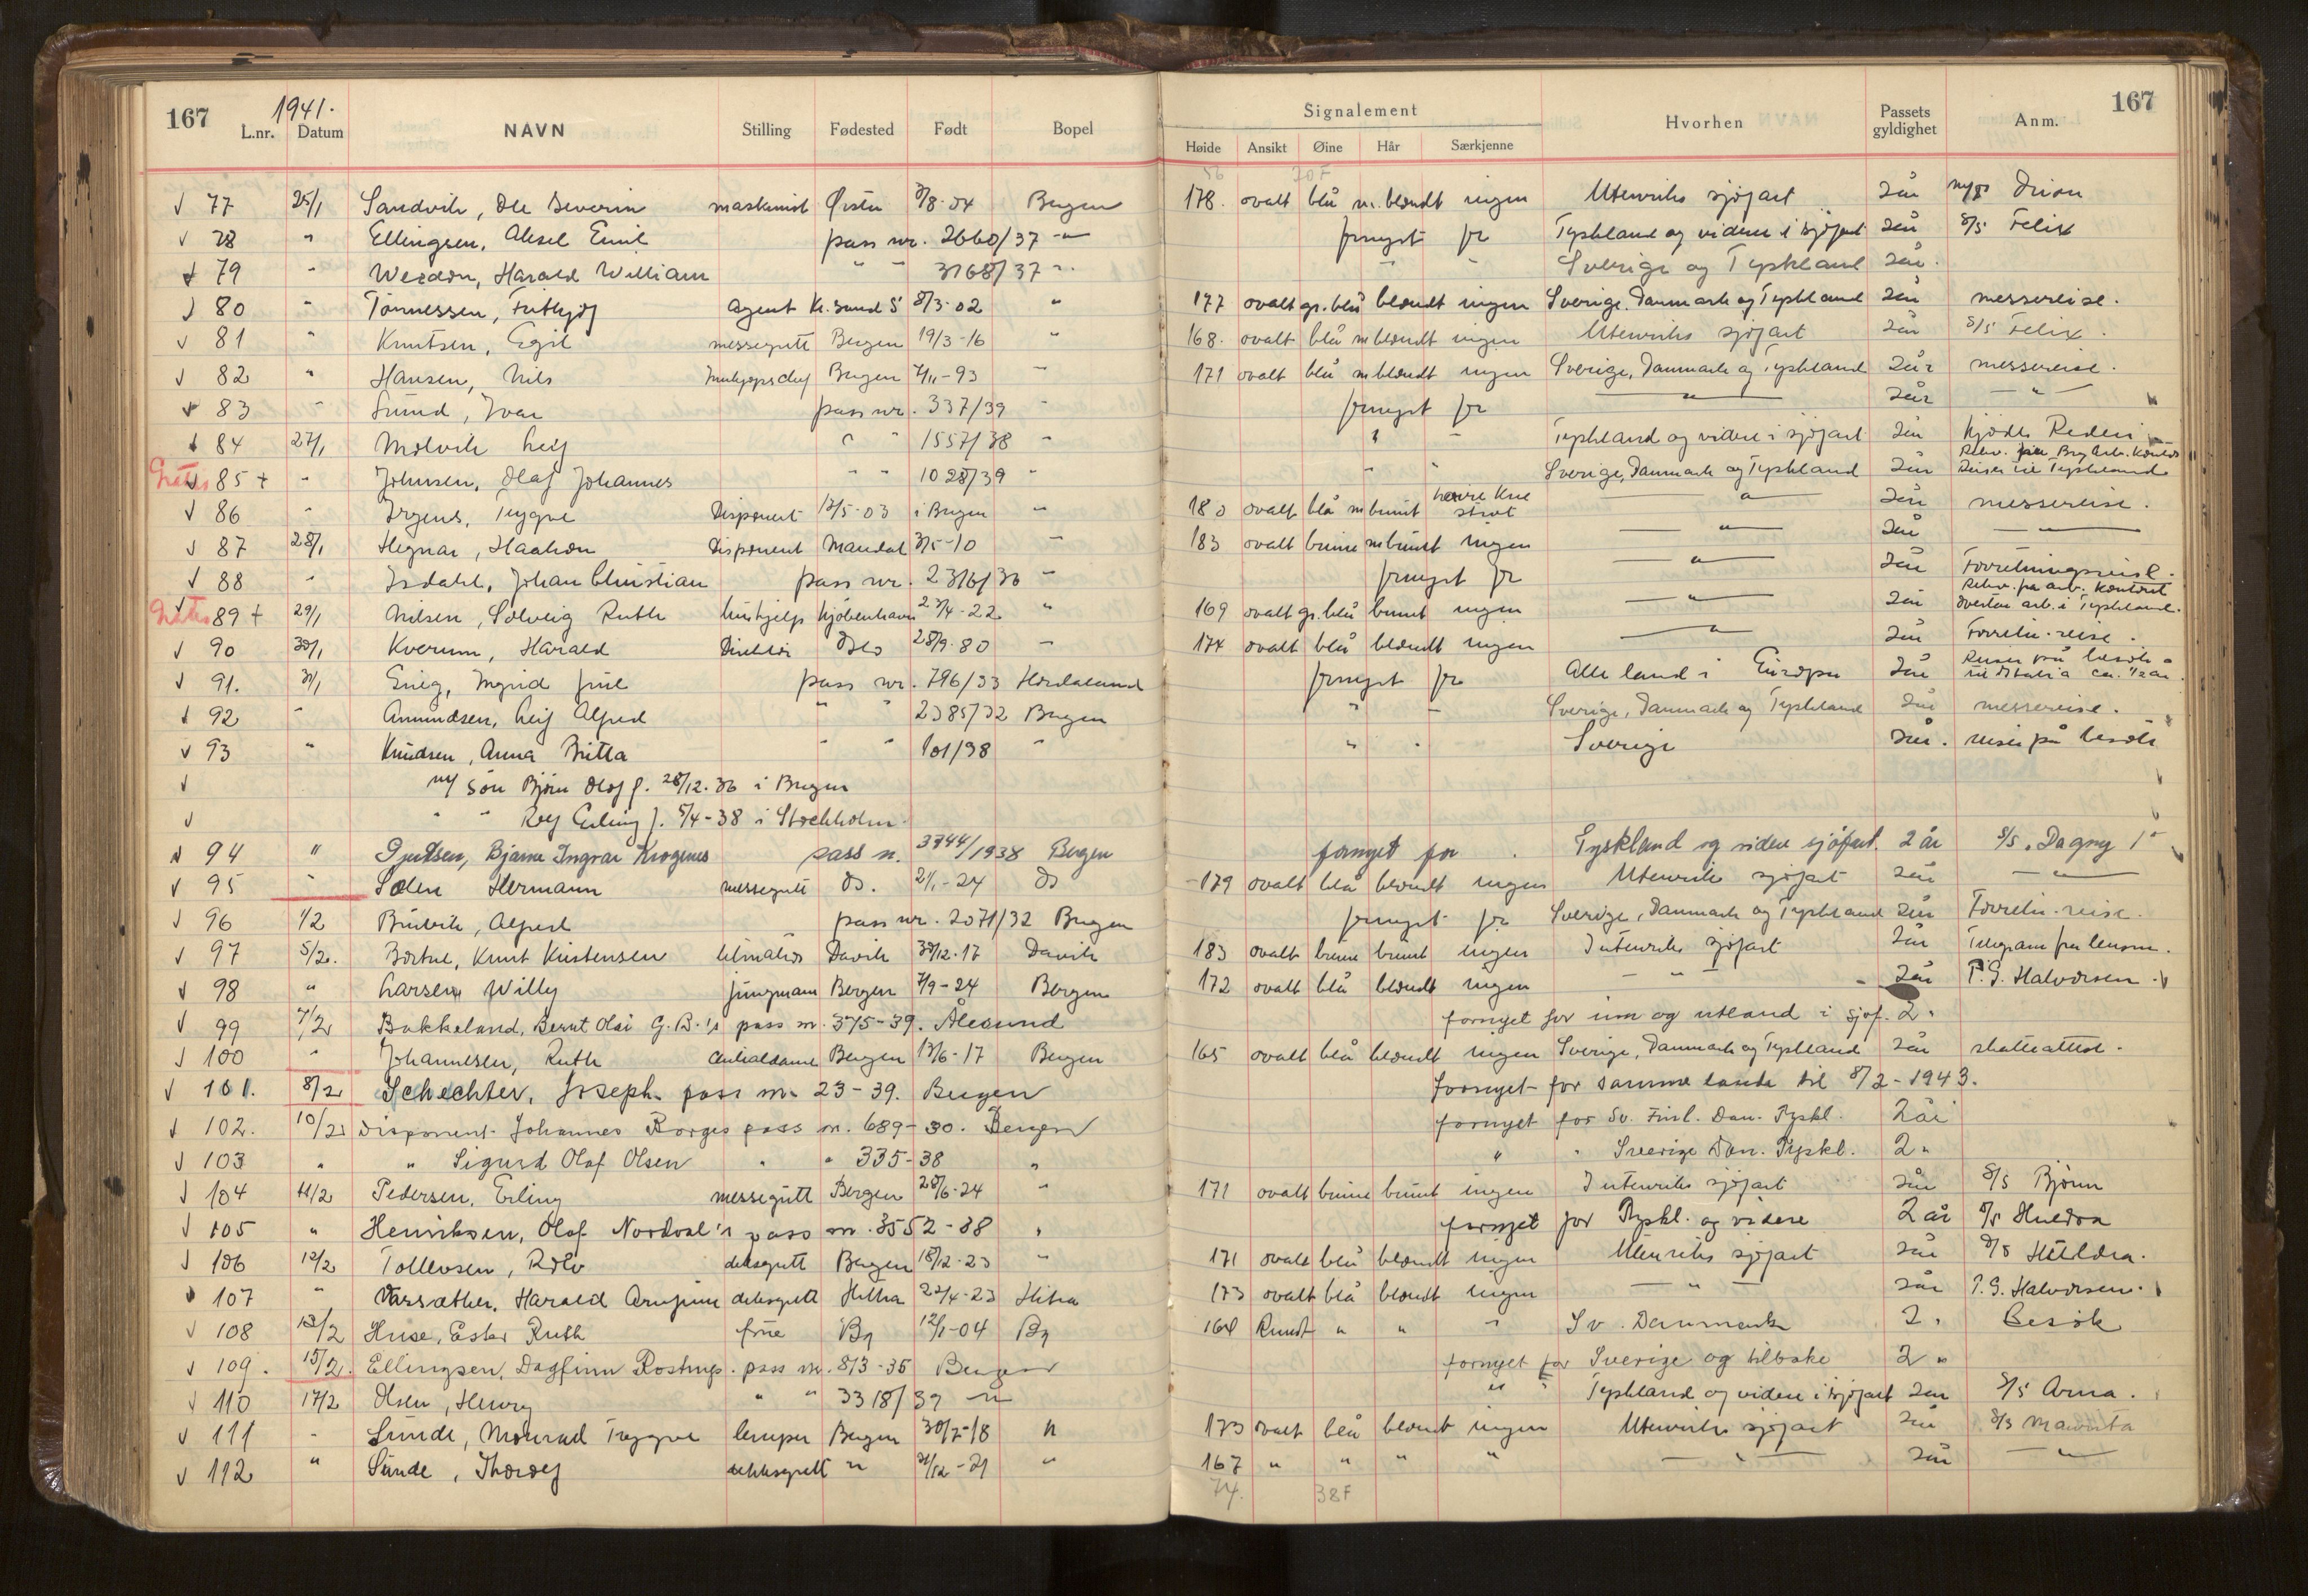 167 1941. 167
L.nr. Datum NAVN Stilling Fødested Født Bopel Signalement Hvorhen Passets gyldighet Anm.
Høide Ansikt Øine Hår Særkjenne
56 70 F
77 25/1 Sandvik, Ole Severin maskinist Ørsta 3/8-04 Bergen 178. ovalt blå m. blondt ingen Utenriks sjøfart 2 år Orion
78 " Ellingsen, Aksel Emil pass nr. 2660/37 " fornyet for Tyskland og videre i sjøfart 2 år s/s Felix
79 " Harald William " " 3168/37 " " " Sverige og Tyskland 2 år.
80 " Tønnessen, Fritjof agent Kr. sund S 8/3-02 " 177 ovalt gr. blå blondt ingen Sverige, Danmark og Tyskland 2 år messereise.
81 " Knutsen, Egil messegutt Bergen 19/3-16 " 168. ovalt blå m blondt ingen Utenriks sjøfart 2 år s/s Felix.
82 " Hansen, Nils Innkjøpschef Bergen 7/11-93 " 171 ovalt blå m blondt ingen Sverige, Danmark og Tyskland 2 år messereise.
83 " Sund, Ivar pass nr. 337/39 " fornyet for " 2 år "
84 27/1 Molvik Leif " " 1557/38 " " " Tyskland og videre i sjøfart 2 år Kjøde Rederi
Gratis 85 + " Johnsen, Olaf Johannes " " 1028/39 " " " Sverige, Danmark og Tyskland 2 år Rekv. fra Brg Arb. Kontor Reiser til Tyskland
86 " Irgens, Trygve Disponent 12/5-03 i Bergen " 180 ovalt blå m brunt høire kne stivt " 2 år messereise.
87 28/1 Hegnar, Haakon Disponent Mandal 3/5-10 " 183 ovalt brune m brunt ingen " 2 år "
88 " Isdahl, Johan Christian pass nr. 2316/36 " fornyet for " 2 år Forretningsreise.
Gratis 89 + 29/1 Nilsen, Solveig Ruth hushjelp Kjøbenhavn 27/4-22 " 169 ovalt gr. blå brunt ingen " 2 år Rekv. fra arb. kontoret arb. i Tyskland.
90 30/1 Kverum, Harald Direktør Oslo 28/9-80 " 174 ovalt blå blondt ingen " 2 år Forretn. reise.
91. 31/1 Grieg, Ingrid Juul pass nr. 796/33 Hordaland fornyet for Alle land i Europa 2 år Reiser på besök til Italia ca. 1/2 år.
92 " Amundsen, Leif Alfred " " 2385/32 Bergen " " Sverige, Danmark og Tyskland 2 år messereise.
93 " Knudsen, Anna Britta " " 101/38 " " " Sverige 2 år. reiser på besök
m/ sön Björn Olof f. 28/12-36 i Bergen
" " Rolf Erling f. 5/4-38 i Stockholm
94 " Gjertsen, Bjarne Ingvar Krogenes pass nr. 3744/1938 Bergen fornyet for Tyskland og videre sjøfart. 2 år s/s "Dagny I"
95 " Solen Hermann messegutt do. 2/1-24 do 179 ovalt blå blondt ingen Utenriks sjøfart 2 år "
96 1/2 Alfred pass nr. 2071/32 Bergen fornyet for Sverige, Danmark og Tyskland 2 år Forretn. reise.
97 5/2. Knut Kristensen Davik 30/12-17 Davik 183 ovalt brune brunt ingen Utenriks sjøfart 2 år Telegram fra lensm.
98 " Larsen, Willy jungmann Bergen 7/9-24 Bergen 172 ovalt blå blondt ingen " 2 år P.G. Halvorsen.
99 7/2 Bakkelund, Bernt Olai G.B.'s pass nr. 375-39. Ålesund fornyet for inn og utland i sjøf. 2 "
100 " Johannesen, Ruth Bergen 13/6-17 Bergen 165 ovalt blå blondt ingen Sverige, Danmark og Tyskland 2 år skatteattest.
101. 8/2 Schechter, Joseph pass nr. 23-39. Bergen fornyet for samme lande til 8/2-1943.
102. 10/2 Disponent Johannes Borges pass nr. 689-30. Bergen fornyet for Sv. Finl. Dan. Tyskl. 2 år
103 " " Sigurd Olaf Olsen " " 335-38 " " " Sverige Dan. Tyskl. 2 "
104 11/2 Pedersen, Erling messegutt Bergen 28/6-24 " 171 ovalt brune brunt ingen Utenriks sjøfart 2 år S/s Björn
105 " Henriksen, Olaf Nordval's pass nr. 3552-38 " fornyet for Tyskl. og videre 2 år s/s Huldra
106 12/2 Tollevsen, Rolv dekksgutt Bergen 18/12-23 " 171 ovalt blå blondt ingen Utenriks sjøfart 2 år s/s Huldra.
107 " Harald Arnfinn dekksgutt Hitra 22/4-23 Hitra 173 ovalt blå blondt ingen " 2 år P.G. Halvorsen.
108 13/2 Huse, Ester Ruth frue Bg 12/1-04 Bg 164 Rundt " " " Sv. Danmark 2 " Besök
109. 15/2. Ellingsen, Dagfinn Rostrup. pass nr. 813-35 Bergen fornyet for Sverige og tilbake 2 "
110 17/2 Olsen, Henry " " 3318/39 " " " Tyskland og videre i sjøfart 2 år S/s Arna.
111 " Sunde, Monrad Trygve lemper Bergen 30/7-18 " 173 ovalt blå blondt ingen Utenriks sjøfart 2 år S/s
112 " Sunde, Thorolf dekksgutt " 21/12-21 " 167 " " " " " 2 år "
74. 38 F